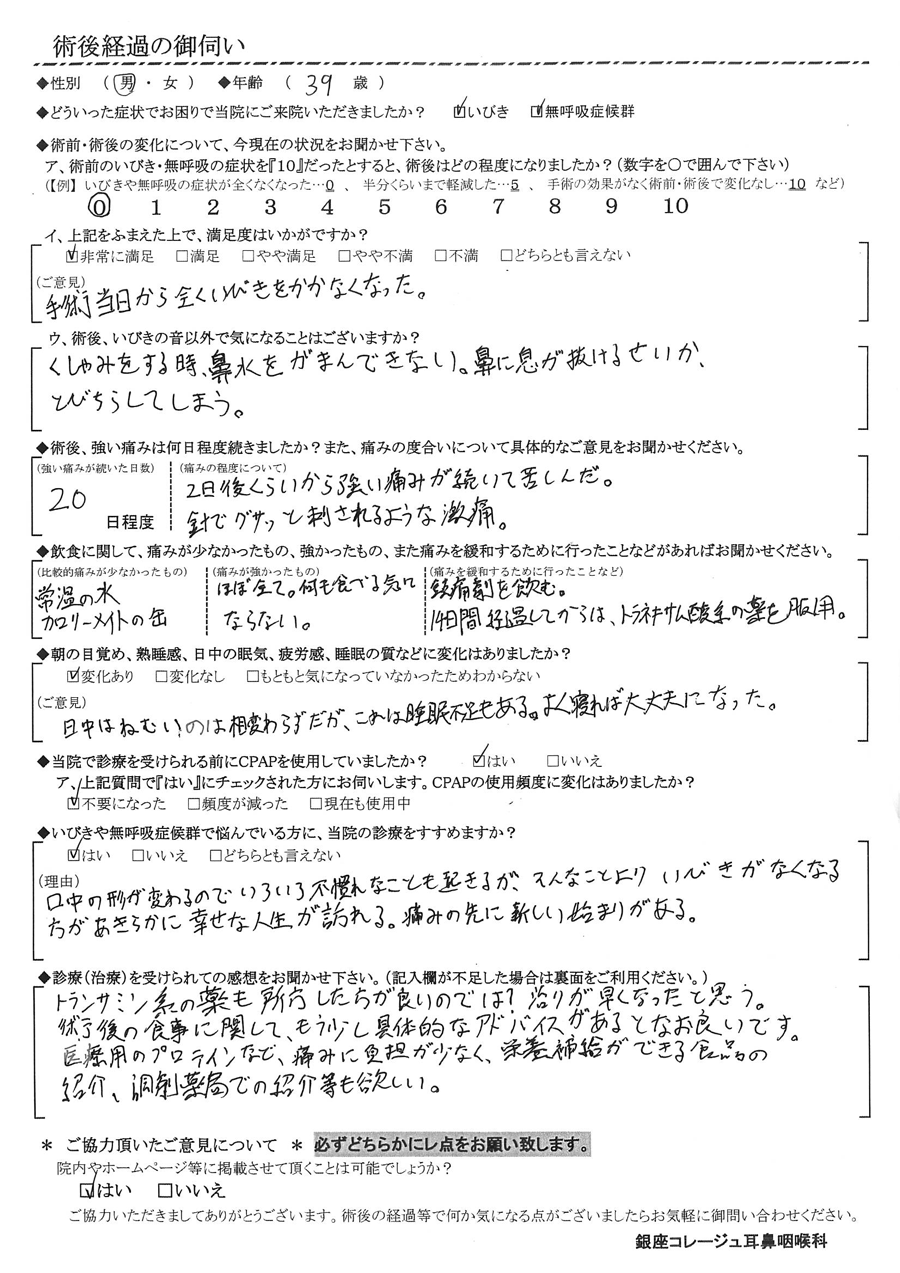 術後経過の御伺い
◆性別 （ 男 ・ 女 ） ◆年齢 （ 39 歳 ）
◆どういった症状でお困りで当院にご来院いただきましたか？ ☑いびき ☑無呼吸症候群
◆術前・術後の変化について、今現在の状況をお聞かせ下さい。
ア、術前のいびき・無呼吸の症状を『10』だったとすると、術後はどの程度になりましたか？（数字を〇で囲んで下さい）
（【例】 いびきや無呼吸の症状が全くなくなった…0 、 半分くらいまで軽減した…5 、 手術の効果がなく術前・術後で変化なし…10 など）
0 1 2 3 4 5 6 7 8 9 10
イ、上記をふまえた上で、満足度はいかがですか？
☑非常に満足 □満足 □やや満足 □やや不満 □不満 □どちらとも言えない
（ご意見）
手術当日から全くいびきをかかなくなった。
ウ、術後、いびきの音以外で気になることはございますか？
くしゃみをする時、鼻水をがまんできない。鼻に息が抜けるせいか、
とびちらしてしまう。
◆術後、強い痛みは何日程度続きましたか？また、痛みの度合いについて具体的なご意見をお聞かせください。
（強い痛みが続いた日数） （痛みの程度について）
20 日程度
2日後くらいから強い痛みが続いて苦しんだ。
針でグサッと刺されるような激痛。
◆飲食に関して、痛みが少なかったもの、強かったもの、また痛みを緩和するために行ったことなどがあればお聞かせください。
（比較的痛みが少なかったもの） （痛みが強かったもの） （痛みを緩和するために行ったことなど）
常温の水
カロリーメイトの缶
ほぼ全て。何も食べる気に
ならない。
鎮痛剤を飲む。
14日間経過してからは、トラネキサム酸系の薬を服用。
◆朝の目覚め、熟睡感、日中の眠気、疲労感、睡眠の質などに変化はありましたか？
☑変化あり □変化なし □もともと気になっていなかったためわからない
（ご意見）
日中はねむいのは相変わらずだが、これは睡眠不足もある。よく寝れば大丈夫になった。
◆当院で診療を受けられる前にCPAPを使用していましたか？ ☑はい □いいえ
ア、上記質問で『はい』にチェックされた方にお伺いします。CPAPの使用頻度に変化はありましたか？
☑不要になった □頻度が減った □現在も使用中
◆いびきや無呼吸症候群で悩んでいる方に、当院の診療をすすめますか？
☑はい □いいえ □どちらとも言えない
（理由）
口中の形が変わるのでいろいろ不慣れなことも起きるが、そんなことより いびきがなくなる
方があきらかに幸せな人生が訪れる。痛みの先に新しい始まりがある。
◆診療（治療）を受けられての感想をお聞かせ下さい。（記入欄が不足した場合は裏面をご利用ください。）
トランサミン系の薬も処方した方が良いのでは？治りが早くなったと思う。
術後の食事に関して、もう少し具体的なアドバイスがあるとなお良いです。
医療用のプロテインなど、痛みに負担が少なく、栄養補給ができる食品の
紹介、調剤薬局での紹介等も欲しい。
＊ ご協力頂いたご意見について ＊ 必ずどちらかにレ点をお願い致します。
院内やホームページ等に掲載させて頂くことは可能でしょうか？
☑はい □いいえ
ご協力いただきましてありがとうございます。術後の経過等で何か気になる点がございましたらお気軽に御問い合わせください。
銀座コレージュ耳鼻咽喉科